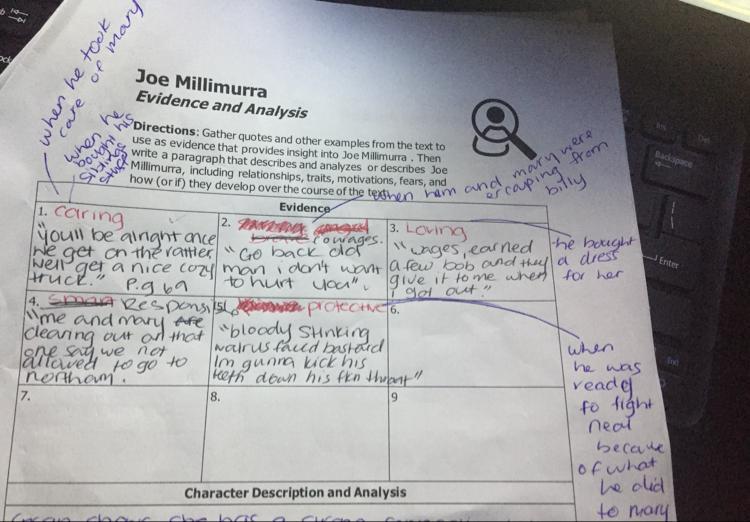 when he took
care of mary
when he
bought his
siblings
Joe Millimurra
Evidence and Analysis
Directions: Gather quotes and other examples from the text to
use as evidence that provides insight into Joe Millimurra . Then
write a paragraph that describes and analyzes or describes Joe
Millimurra, including relationships, traits, motivations, fears, and
how (or if) they develop over the course of the text.
when him and mary were
escaping from
billy
Evidence
1. caring
"youll be alright once
we get on the rattler
we'll get a nice cozy
truck." P.g 69
2.
courages.
"Go back old
man i don't want
to hurt you".
3. Loving
"wages, earned
a few bob and they
give it to me when
I got out."
he bought
a dress
for her
4. smart Responsible
"me and mary are
clearing out on that
one say we not
allowed to go to
northam.
5. protective
"bloody stinking
walrus faced bastard
Im gunna kick his
teeth down his fkn throat"
6.
when
he was
ready
to fight
neal
because
of what
he did
to mary
7.
8.
9
Character Description and Analysis
Backspace
Enter
End
Ins
Del